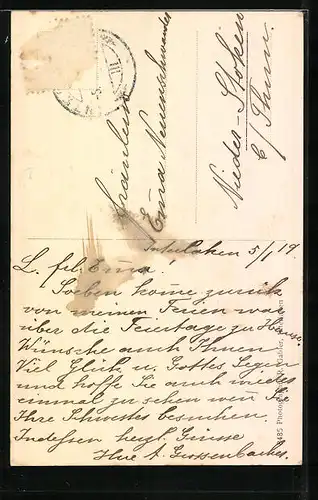 Fräulein
Emma Neuenschwander
Nieder-Stocken
b/ Thun.
Interlaken 5/1 19.
L. frl. Emma!
Soeben kome zurück
von meinen Ferien war
über die Feiertage zu Hause.
Wünsche auch Ihnen
Viel Glück u. Gottes Segen
und hoffe Sie auch wieder
einmal zu sehen wen Sie
Ihre Schwester besuchen.
Indessen herzl. Grüsse
Ihre A. Grossenbacher.
Gabler, Interlaken